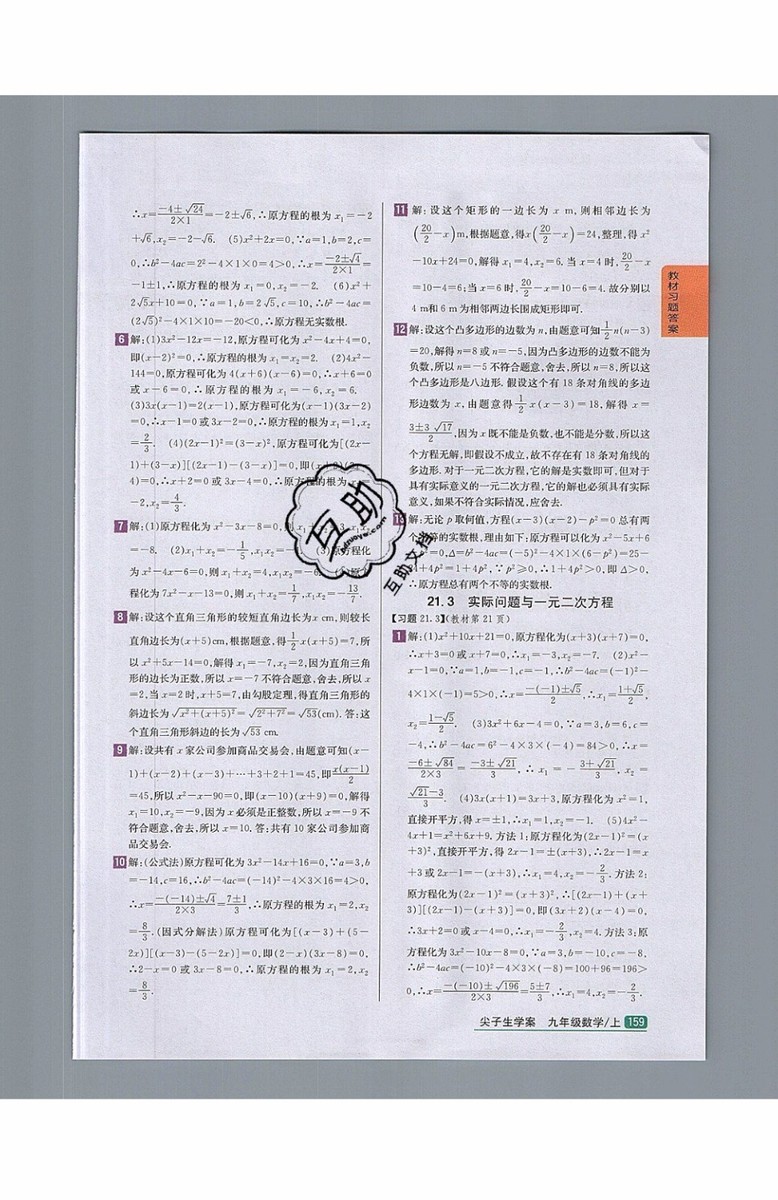 ∴x=\frac{-4±√24}{2×1}=-2±√6,∴原方程的根为 x₁=-2
+√6,x₂=-2-√6. (5)x²+2x=0,∵a=1,b=2,c=
0,∴b²-4ac=2²-4×1×0=4>0,∴x=\frac{-2±√4}{2×1}=
-1±1,∴原方程的根为 x₁=0,x₂=-2. (6)x²+
2√5x+10=0,∵a=1,b=2√5,c=10,∴b²-4ac=
(2√5)²-4×1×10=-20<0,∴原方程无实数根.
6 解:(1)3x²-12x=-12,原方程可化为 x²-4x+4=0,
即(x-2)²=0,∴原方程的根为 x₁=x₂=2. (2)4x²-
144=0,原方程可化为 4(x+6)(x-6)=0,∴x+6=0
或 x-6=0,∴原方程的根为 x₁=-6,x₂=6.
(3)3x(x-1)=2(x-1),原方程可化为(x-1)(3x-2)
=0,∴x-1=0或 3x-2=0,∴原方程的根为x₁=1,x₂
=\frac{2}{3}. (4)(2x-1)²=(3-x)²,原方程可化为[(2x-
1)+(3-x)][(2x-1)-(3-x)]=0,即(x+2)(3x-
4)=0,∴x+2=0 或 3x-4=0,∴原方程的根为 x₁=
-2,x₂=\frac{4}{3}.
7 解:(1)原方程化为 x²-3x-8=0,则 x₁+x₂=3,x₁x₂
=-8. (2)x₁+x₂=-\frac{1}{5},x₁x₂= (3)原方程化
为 x²-4x-6=0,则 x₁+x₂=4,x₁x₂=-6.
程化为 7x²-x-13=0,则x₁+x₂=\frac{1}{7},x₁x₂=-\frac{13}{7}.
8 解:设这个直角三角形的较短直角边长为 x cm,则较长
直角边长为(x+5)cm,根据题意,得\frac{1}{2}x(x+5)=7,所
以 x²+5x-14=0,解得 x₁=-7,x₂=2,因为直角三角
形的边长为正数,所以 x=-7 不符合题意,舍去,所以 x
=2,当 x=2 时,x+5=7,由勾股定理,得直角三角形的
斜边长为√(x²+(x+5)²)=√(2²+7²)=√53(cm).答:这
个直角三角形斜边的长为√53 cm.
9 解:设共有 x 家公司参加商品交易会,由题意可知(x-
1)+(x-2)+(x-3)+…+3+2+1=45,即\frac{x(x-1)}{2}
=45,所以 x²-x-90=0,即(x-10)(x+9)=0,解得
x₁=10,x₂=-9,因为 x 必须是正整数,所以 x=-9 不
符合题意,舍去,所以 x=10.答:共有 10 家公司参加商
品交易会.
10 解:(公式法)原方程可化为 3x²-14x+16=0,∵a=3,b
=-14,c=16,∴b²-4ac=(-14)²-4×3×16=4>0,
∴x=\frac{-(-14)±√4}{2×3}=\frac{7±1}{3},∴原方程的根为 x₁=2,x₂
=\frac{8}{3}.(因式分解法)原方程可化为[(x-3)+(5-
2x)][(x-3)-(5-2x)]=0,即(2-x)(3x-8)=0,
∴2-x=0 或 3x-8=0,∴原方程的根为 x₁=2,x₂
=\frac{8}{3}.
11 解:设这个矩形的一边长为 x m,则相邻边长为
(\frac{20}{2}-x)m,根据题意,得x(\frac{20}{2}-x)=24,整理,得 x²
-10x+24=0,解得 x₁=4,x₂=6.当 x=4 时,\frac{20}{2}-x
=10-4=6;当 x=6 时,\frac{20}{2}-x=10-6=4.故分别以
4 m和 6 m 为相邻两边长围成矩形即可.
12 解:设这个凸多边形的边数为 n,由题意可知\frac{1}{2}n(n-3)
=20,解得 n=8 或 n=-5,因为凸多边形的边数不能为
负数,所以 n=-5 不符合题意,舍去,所以 n=8,所以这
个凸多边形是八边形.假设这个有 18 条对角线的多边
形边数为 x,由题意得\frac{1}{2}x(x-3)=18,解得 x=
\frac{3±3√17}{2},因为 x 既不能是负数,也不能是分数,所以这
个方程无解,即假设不成立,故不存在有 18 条对角线的
多边形.对于一元二次方程,它的解是实数即可,但对于
具有实际意义的一元二次方程,它的解也必须具有实际
意义,如果不符合实际情况,应舍去.
13 解:无论 p 取何值,方程(x-3)(x-2)-p²=0 总有两
个不等的实数根,理由如下:原方程可以化为 x²-5x+6
=0,Δ=b²-4ac=(-5)²-4×1×(6-p²)=25-
+4p²=1+4p²,∵p²≥0,∴1+4p²>0,即 Δ>0,
∴原方程总有两个不等的实数根.
21.3 实际问题与一元二次方程
【习题 21.3】(教材第 21 页)
1 解:(1)x²+10x+21=0,原方程化为(x+3)(x+7)=0,
∴x+3=0或 x+7=0,∴x₁=-3,x₂=-7. (2)x²-
x-1=0,∵a=1,b=-1,c=-1,∴b²-4ac=(-1)²-
4×1×(-1)=5>0,∴x=\frac{-(-1)±√5}{2},∴x₁=\frac{1+√5}{2},
x₂=\frac{1-√5}{2}. (3)3x²+6x-4=0,∵a=3,b=6,c=
-4,∴b²-4ac=6²-4×3×(-4)=84>0,∴x=
\frac{-6±√84}{2×3}=\frac{-3±√21}{3},∴x₁=-\frac{3+√21}{3},x₂=
\frac{√21-3}{3}. (4)3x(x+1)=3x+3,原方程化为 x²=1,
直接开平方,得 x=±1,∴x₁=1,x₂=-1. (5)4x²-
4x+1=x²+6x+9.方法 1:原方程化为(2x-1)²=(x
+3)²,直接开平方,得 2x-1=±(x+3),∴2x-1=x
+3 或 2x-1=-(x+3),∴x₁=4,x₂=-\frac{2}{3}.方法 2:
原方程化为(2x-1)²=(x+3)²,∴[(2x-1)+(x+
3)][(2x-1)-(x+3)]=0,即(3x+2)(x-4)=0,
∴3x+2=0 或 x-4=0,∴x₁=-\frac{2}{3},x₂=4.方法 3:原
方程化为 3x²-10x-8=0,∵a=3,b=-10,c=-8,
∴b²-4ac=(-10)²-4×3×(-8)=100+96=196>
0,∴x=\frac{-(-10)±√196}{2×3}=\frac{5±7}{3},∴x₁=4,x₂=-\frac{2}{3}.
教材习题答案
互助
互助文档
尖子生学案 九年级数学/上 159